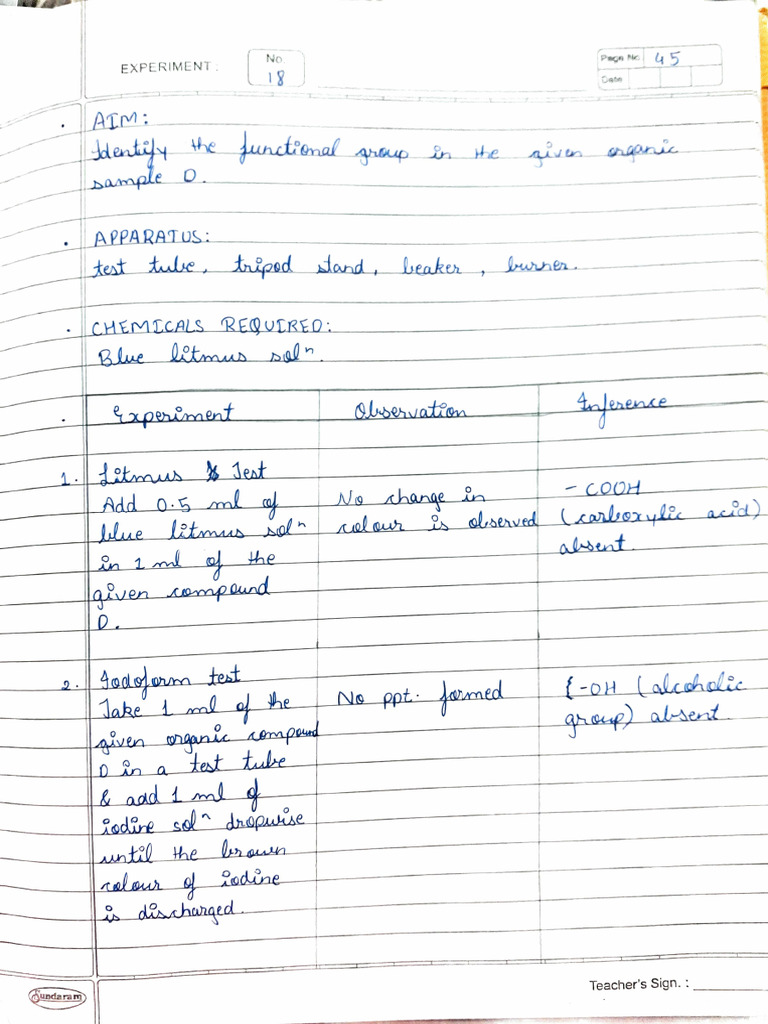 EXPERIMENT: No 18
Page No 45
Date
AIM:
Identify the functional group in the given organic
sample D.
APPARATUS:
test tube, tripod stand, beaker, burner.
CHEMICALS REQUIRED:
Blue litmus solⁿ.
Experiment Observation Inference
1. Litmus Test
Add 0.5 ml of
blue litmus solⁿ
in 1 ml of the
given compound
D.
No change in
colour is observed
- COOH
(carboxylic acid)
absent.
2. Iodoform test
Take 1 ml of the
given organic compound
D in a test tube
& add 1 ml of
iodine solⁿ dropwise
until the brown
colour of iodine
is discharged.
No ppt. formed
{-OH (alcoholic
group) absent.
Sundaram
Teacher's Sign. :